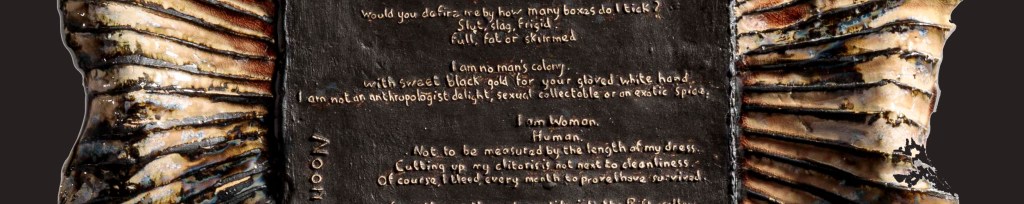 Would you define me by how many boxes do I tick?
Slut, slag, frigid
full, fat or skimmed
I am no man's colony.
with sweet black gold for your gloved white hand,
I am not an anthropologist delight, sexual collectable or an exotic spice,
I am Woman.
Human.
Not to be measured by the length of my dress.
Cutting up my clitoris is not next to cleanliness.
Of course, I bleed, every month to prove I have survived.